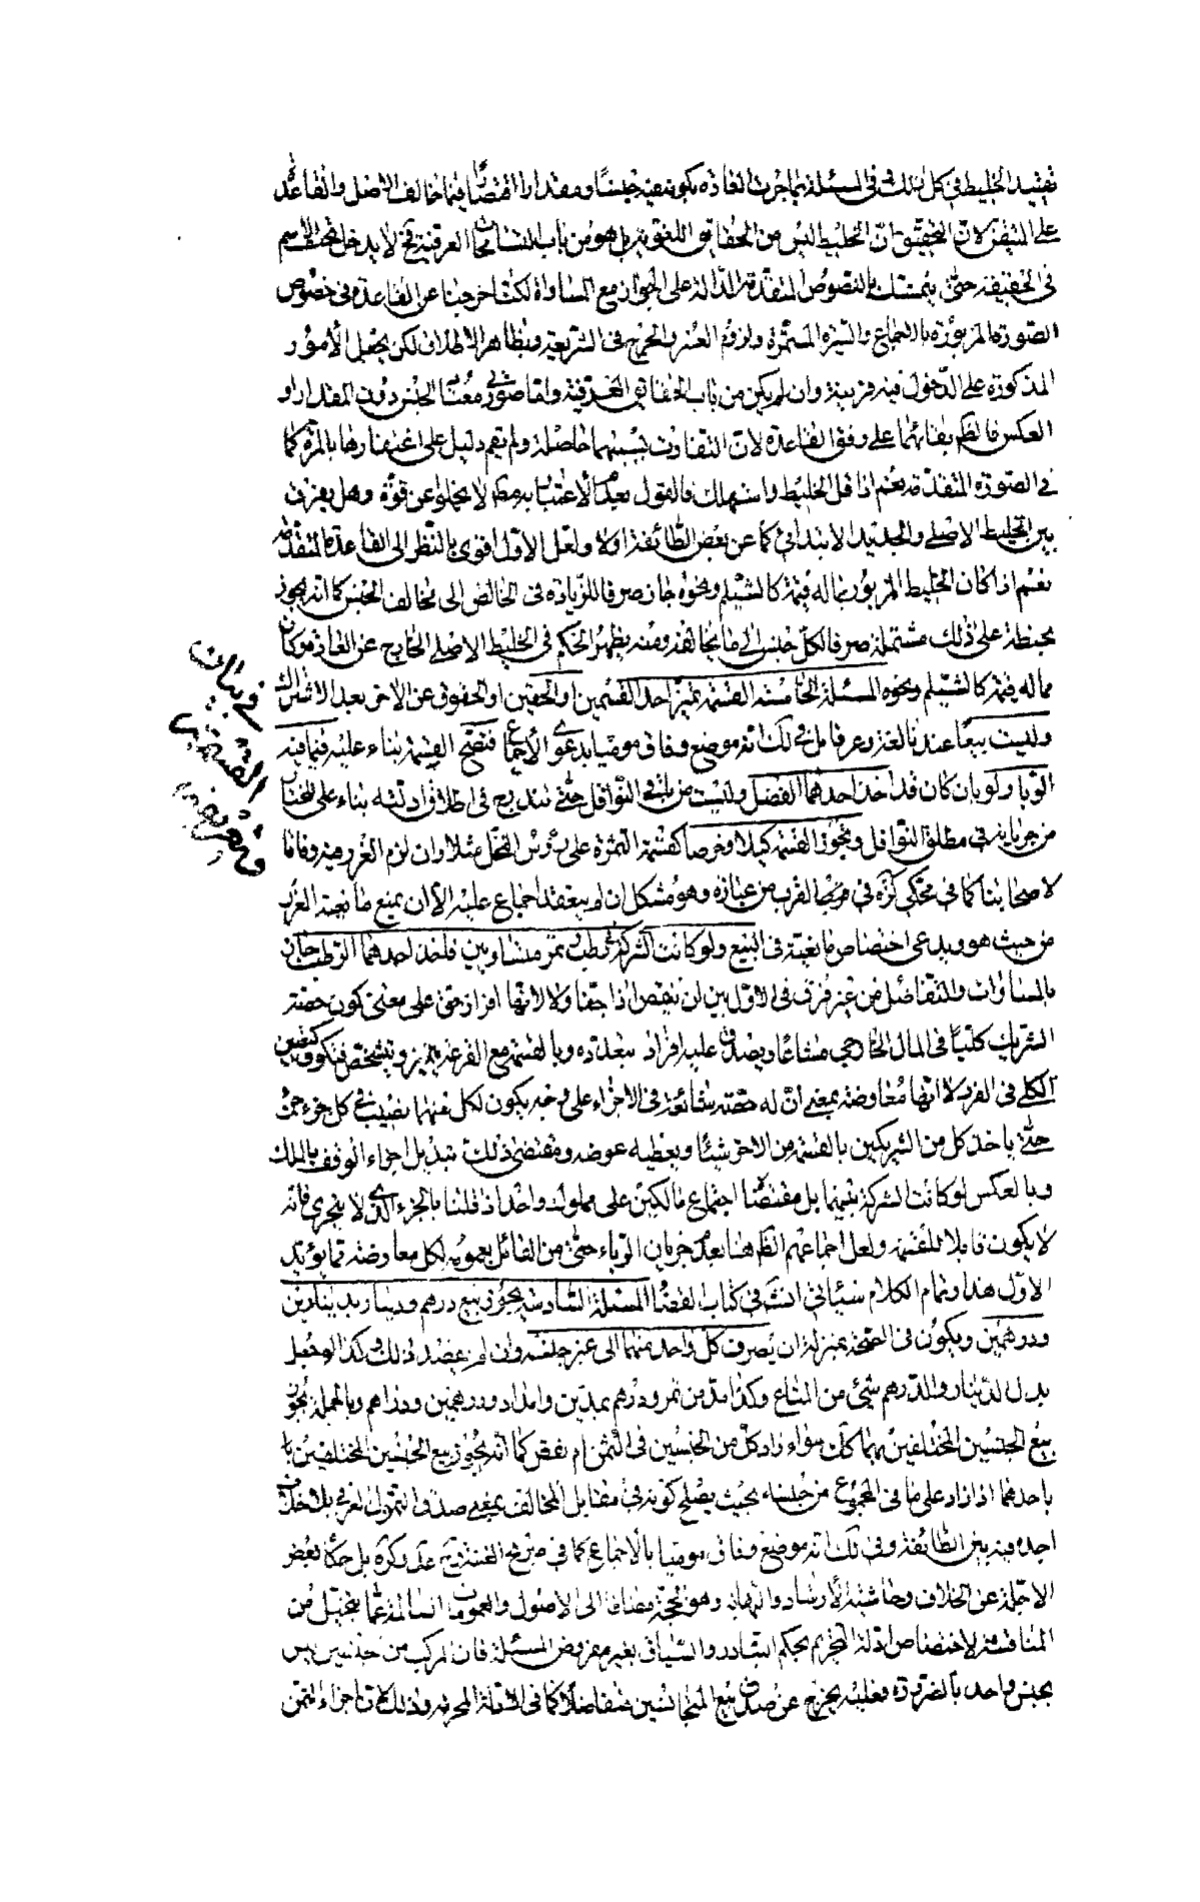 تقييد الخليط في كل في المسئلة بما جرت العادة بكونه فيه جنسا ومقدارا اقتصارا فيما خالف الاصل والقاعدة
على المتيقن لان التحقيق ان الخليط ليس من الحقائق اللغوية بل هو من باب المسامحات العرفية فح لا يدخل تحت الاسم
في الحقيقة حتى يتمسك بالنصوص المتقدمة الدالة على الجواز مع المساواة لكنا خرجنا عن القاعدة في خصوص
الصورة المزبورة بالاجماع والسيرة المستمرة ولزوم العسر والحرج في الشريعة وبظاهر الاطلاق لكن بجعل الأمور
المذكورة على الدخول فيه قرينة وان لم يكن من باب الحقائق العرفية واما صورتي معتاد الجنس دون المقدار او
العكس فالظم بقائهما على وفق القاعدة لان التفاوت بسببهما حاصلة ولم يقم دليل على اغتفارها بالمرة كما
في الصورة المتقدمة نعم اذا قل الخليط واستهلك فالقول بعدم الاعتبار به مطم لا يخلو عن قوة وهل يفرق
بين الخليط الاصلي والجديد الابتدائي كما عن بعض الطائفة او لا ولعل الاول اقوى بالنظر الى القاعدة المتقدمة
نعم اذا كان الخليط المزبور بماله قيمة كالشيلم ونحوه جاز صرفا للزيادة في الخالص الى مخالف الجنس كما انه يجوز
بحنطة على ذلك مشتملة صرفا لكل جنس الى ما يخالفه ومنه يظهر الحكم في الخليط الاصلي الخارج عن العادة لو كان
مما له قيمة كالشيلم ونحوه المسئلة الخامسة القسمة تميز احد القسمين او الحقين او الحقوق عن الاخر بعد الاشتراك
وليست بيعا عندنا لغة وعرفا بل في لك انه موضع وفاق مومئيا بدعوى الاجماع فتصح القسمة بناء عليه فيما فيه
الربا ولو بان كان قد اخذ احدهما الفضل وليست من باب التوافل حتى تندرج في اطلاق ادلته بناء على المختار
من جريانه في مطلق التوافل وتجوز القسمة كيلا وخرصا كقسمة الثمرة على رؤس النخل مثلا وان لزم الغرر فيه وفاقا
لاصحابنا كما في محكي كره في القرب من عبارة وهو مشكل ان لم ينعقد اجماع عليه الا ان يمنع مانعية الغرر
من حيث هو ويدعى اختصاص مانعيته في البيع ولو كانت الشركة في رطب وتمر متساويين فاخذ احدهما الرطب جاز
بالمساوات والتفاضل من غير فرق في الاول بين ان ينقص اذا جف او لا لانها افراز حق على معنى كون حصة
الشريك كليا في المال الخارجي مشاعا ويصدق عليه افراد متعددة وبالقسمة مع القرعة يتميز ويتشخص
الكلي في الفرد لا انها معاوضة بمعنى ان له حصته شائعة في الاجزاء على وجه يكون لكل منهما نصيب في كل جزء جزء
حتى ياخذ كل من الشريكين بالقسمة من الاخر شيئا ويعطيه عوضه ومقتضى ذلك تبديل اجزاء الوقف بالملك
وبالعكس لو كانت الشركة بينهما بل مقتضاه اجتماع مالكين على مملوك واحد اذ قلنا بالجزء الذي لا يتجزى فانه
لا يكون قابلا للقسمة ولعل اجماعهم الظم هنا بعدم جريان الرباء حتى من القائل بعمومه لكل معاوضة مما يؤيد
الاول هذا وتمام الكلام سيأتي انشه في كتاب القضا المسئلة السادسة يجوز بيع درهم ودينار بدينارين
ودرهمين ويكون في الصحة بمنزلة ان يصرف كل واحد منهما الى غير جنسه وان لم يقصد ذلك وكذا لو جعل
بدل الدينار والدرهم شيئ من المتاع وكذا مد من تمر ودرهم بمدين وامداد ودرهمين ودراهم وبالجملة يجوز
بيع الجنسين المختلفين بهما كك سواء زاد كل من الجنسين في الثمن ام نقص كما انه يجوز بيع الجنسين المختلفين
باحدهما اذا زاد على ما في المجموع من جنسه بحيث يصلح كونه في مقابل المخالف بمعنى صدق التمول العرفي بلا خلاف
اجده فيه بين الطائفة وفي لك انه موضع وفاق مومئيا بالاجماع كما في صريح الغنية ومحكي كره بل حكاه بعض
الاجلة عن الخلاف وحاشية الارشاد والنهاية وهو الحجة مضافا الى الاصول والعمومات السالمة عما يتخيل من
المنافضة لاختصاص ادلة التحريم بحكم التبادر والسياق بغير مفروض المسئلة فان المركب من جنسين ليس
بجنس واحد بالضرورة فعليه يخرج عن صدق بيع المتجانسين متفاضلا كما في الادلة المحرمة وذلك لان اجزاء الثمن
في بيان
القسمة
وتعريفه